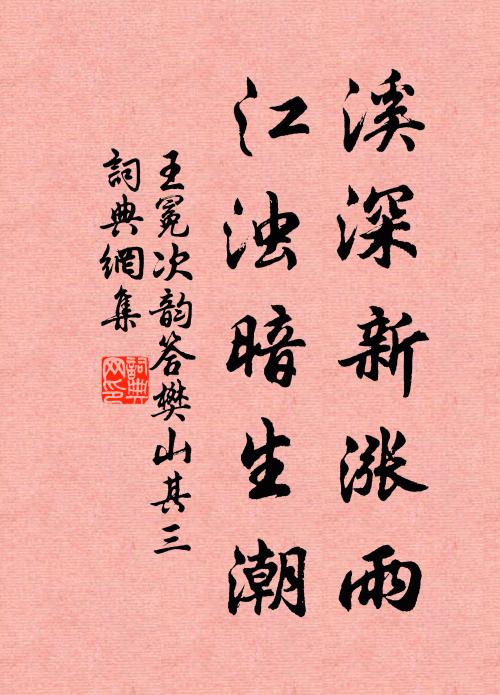 溪深新涨雨
江浊暗生潮
王冕次韵答樊山其三
詞典網集
詞典网印